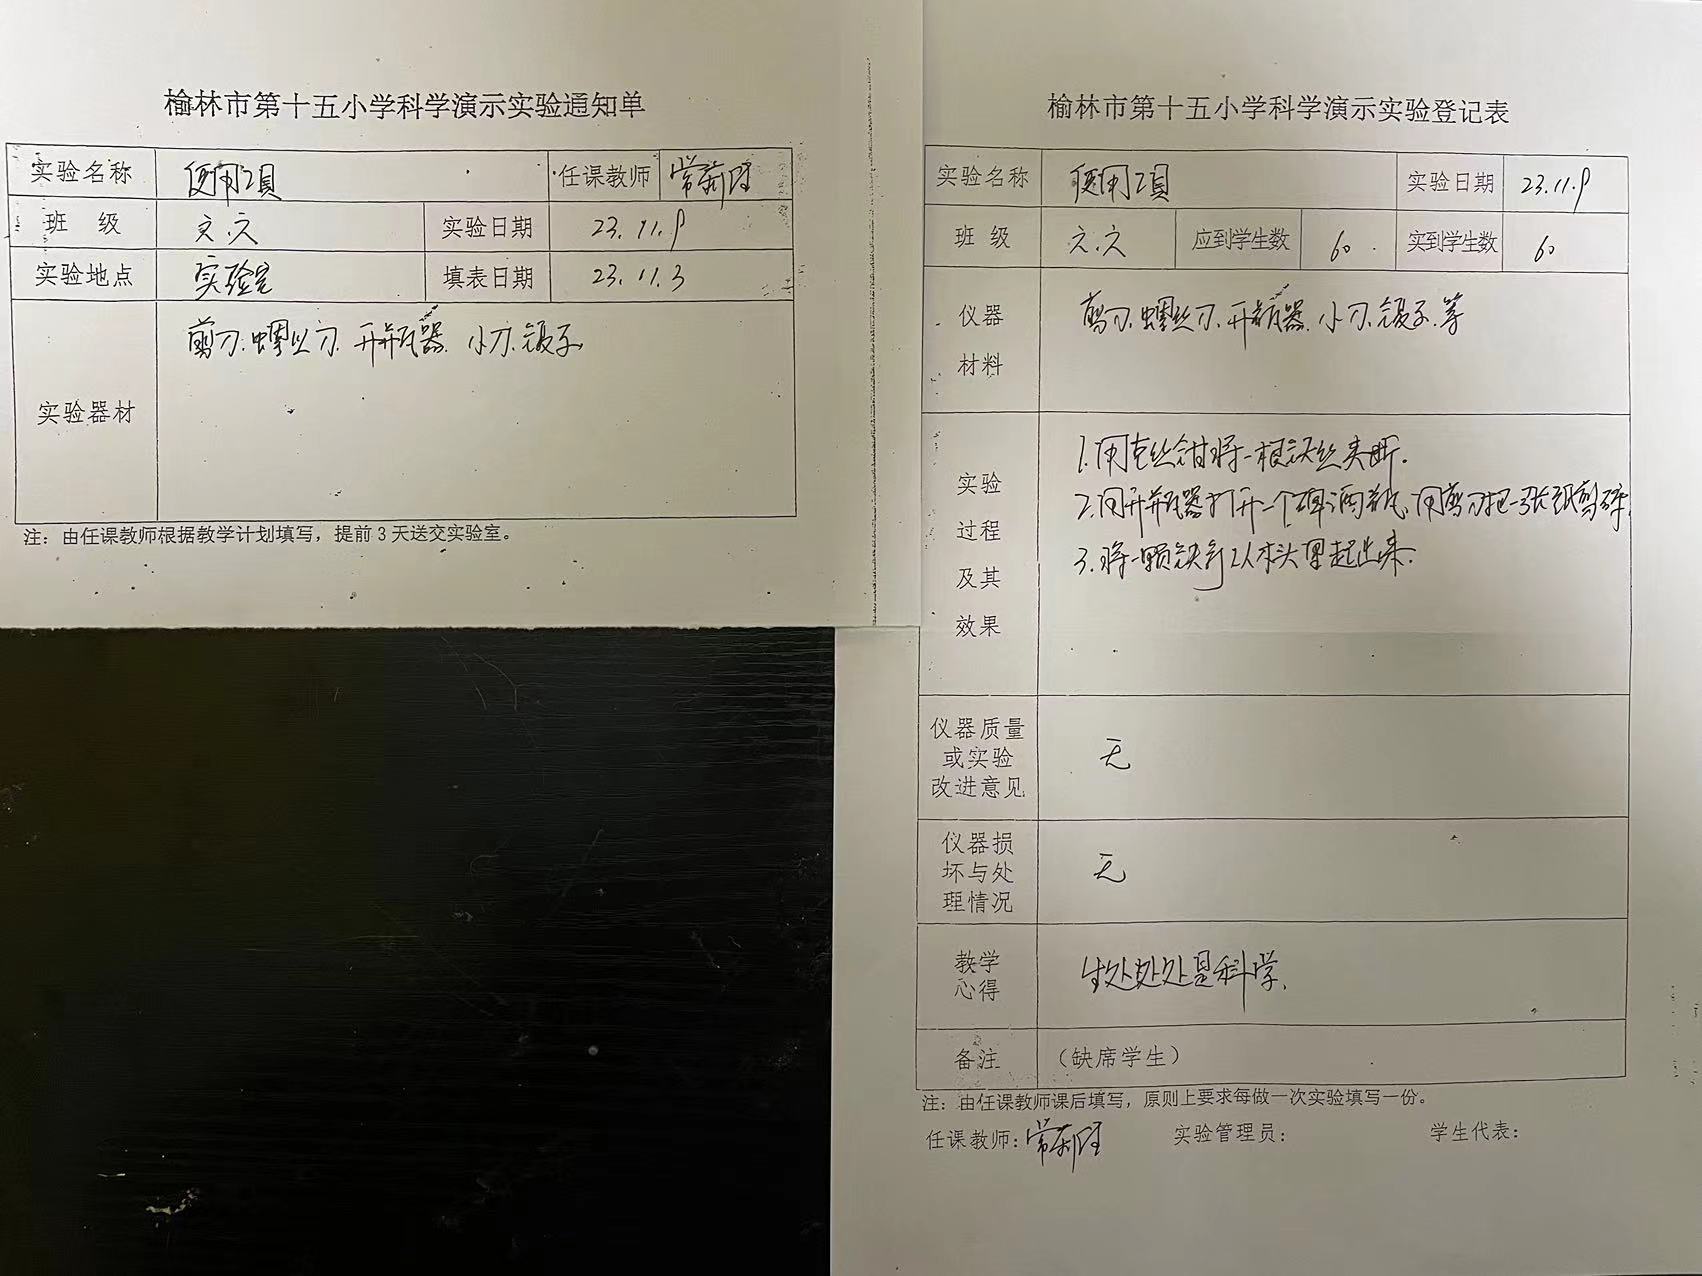 榆林市第十五小学科学演示实验通知单
实验名称 使用工具 任课教师
班 级 六.六 实验日期 23.11.9
实验地点 实验室 填表日期 23.11.3
实验器材 剪刀.螺丝刀.开瓶器.小刀.镊子.
注：由任课教师根据教学计划填写，提前3天送交实验室。
榆林市第十五小学科学演示实验登记表
实验名称 使用工具 实验日期 23.11.9
班 级 六.六 应到学生数 60. 实到学生数 60
仪器
材料
剪刀.螺丝刀.开瓶器.小刀.镊子.等
实验
过程
及其
效果
1.用克丝钳将一根铁丝夹断.
2.用开瓶器打开一个啤酒瓶.用剪刀把一张纸剪碎.
3.将一颗铁钉从木头里起出来.
仪器质量
或实验
改进意见
无
仪器损
坏与处
理情况
无
教学
心得
生处处处是科学.
备注 （缺席学生）
注：由任课教师课后填写，原则上要求每做一次实验填写一份。
任课教师： 实验管理员： 学生代表：